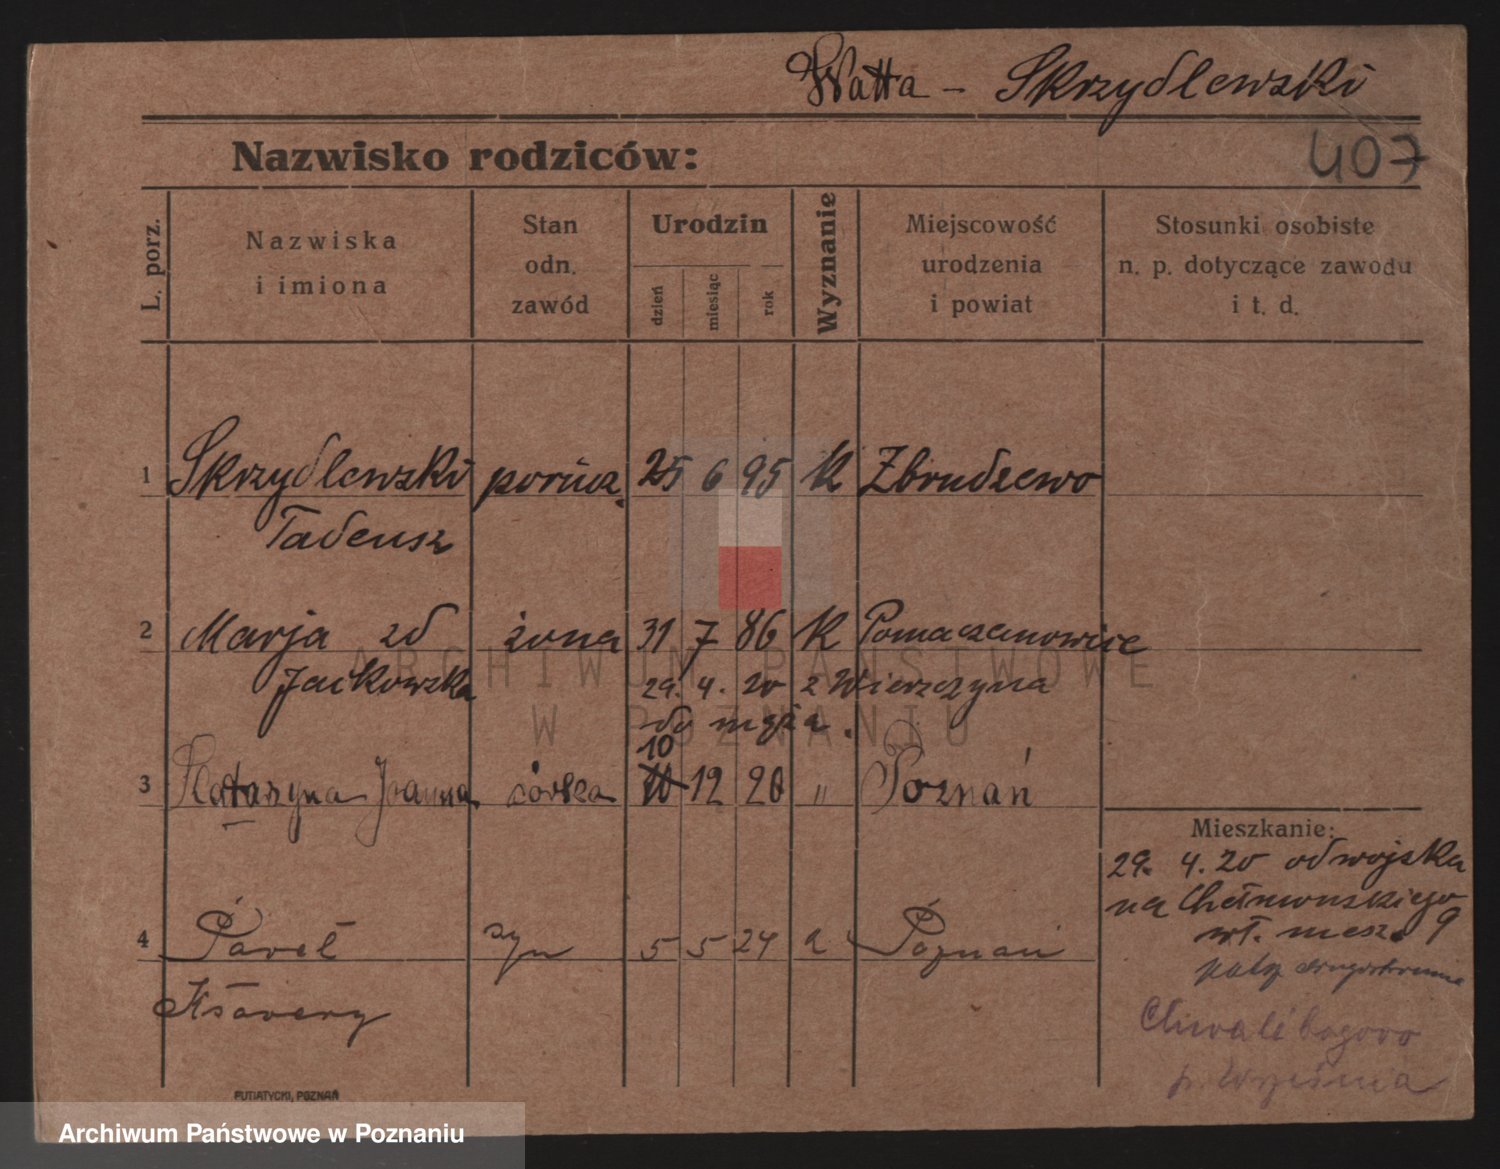 Watta - Skrzydlewski
Nazwisko rodziców:
407
L. porz.
Nazwiska
i imiona
Stan
odn.
zawód
Urodzin
dzień
miesiąc
rok
Wyznanie
Miejscowość
urodzenia
i powiat
Stosunki osobiste
n. p. dotyczące zawodu
i t. d.
1 Skrzydlewski porucz. 25 6 95 K Zbrudzewo
Tadeusz
2 Marja zd żona 31 7 86 K Pomaczanowice
Jackowska 29. 4. 20 z Wierzczyna
do męża.
10
3 Katarzyna Joanna córka 12 20 " Poznań
4 Paweł syn 5 5 24 Poznań
Ksawery
Mieszkanie:
29. 4. 20 od wojska
na
wł. miesz. 9
Chwalibogowo
p. Września
PUTIATYCKI, POZNAŃ
ARCHIWUM PAŃSTWOWE
W POZNANIU
Archiwum Państwowe w Poznaniu